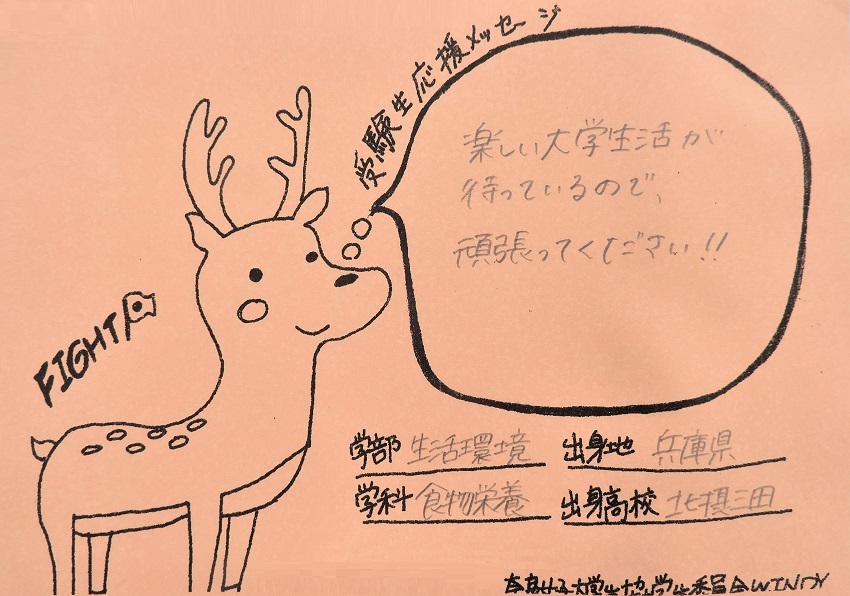 受験生応援メッセージ
楽しい大学生活が
待っているので、
頑張ってください!!
FIGHT
学部 生活環境
出身地 兵庫県
学科 食物栄養
出身高校 北摂三田
奈良女子大学生協学生委員会WINDY